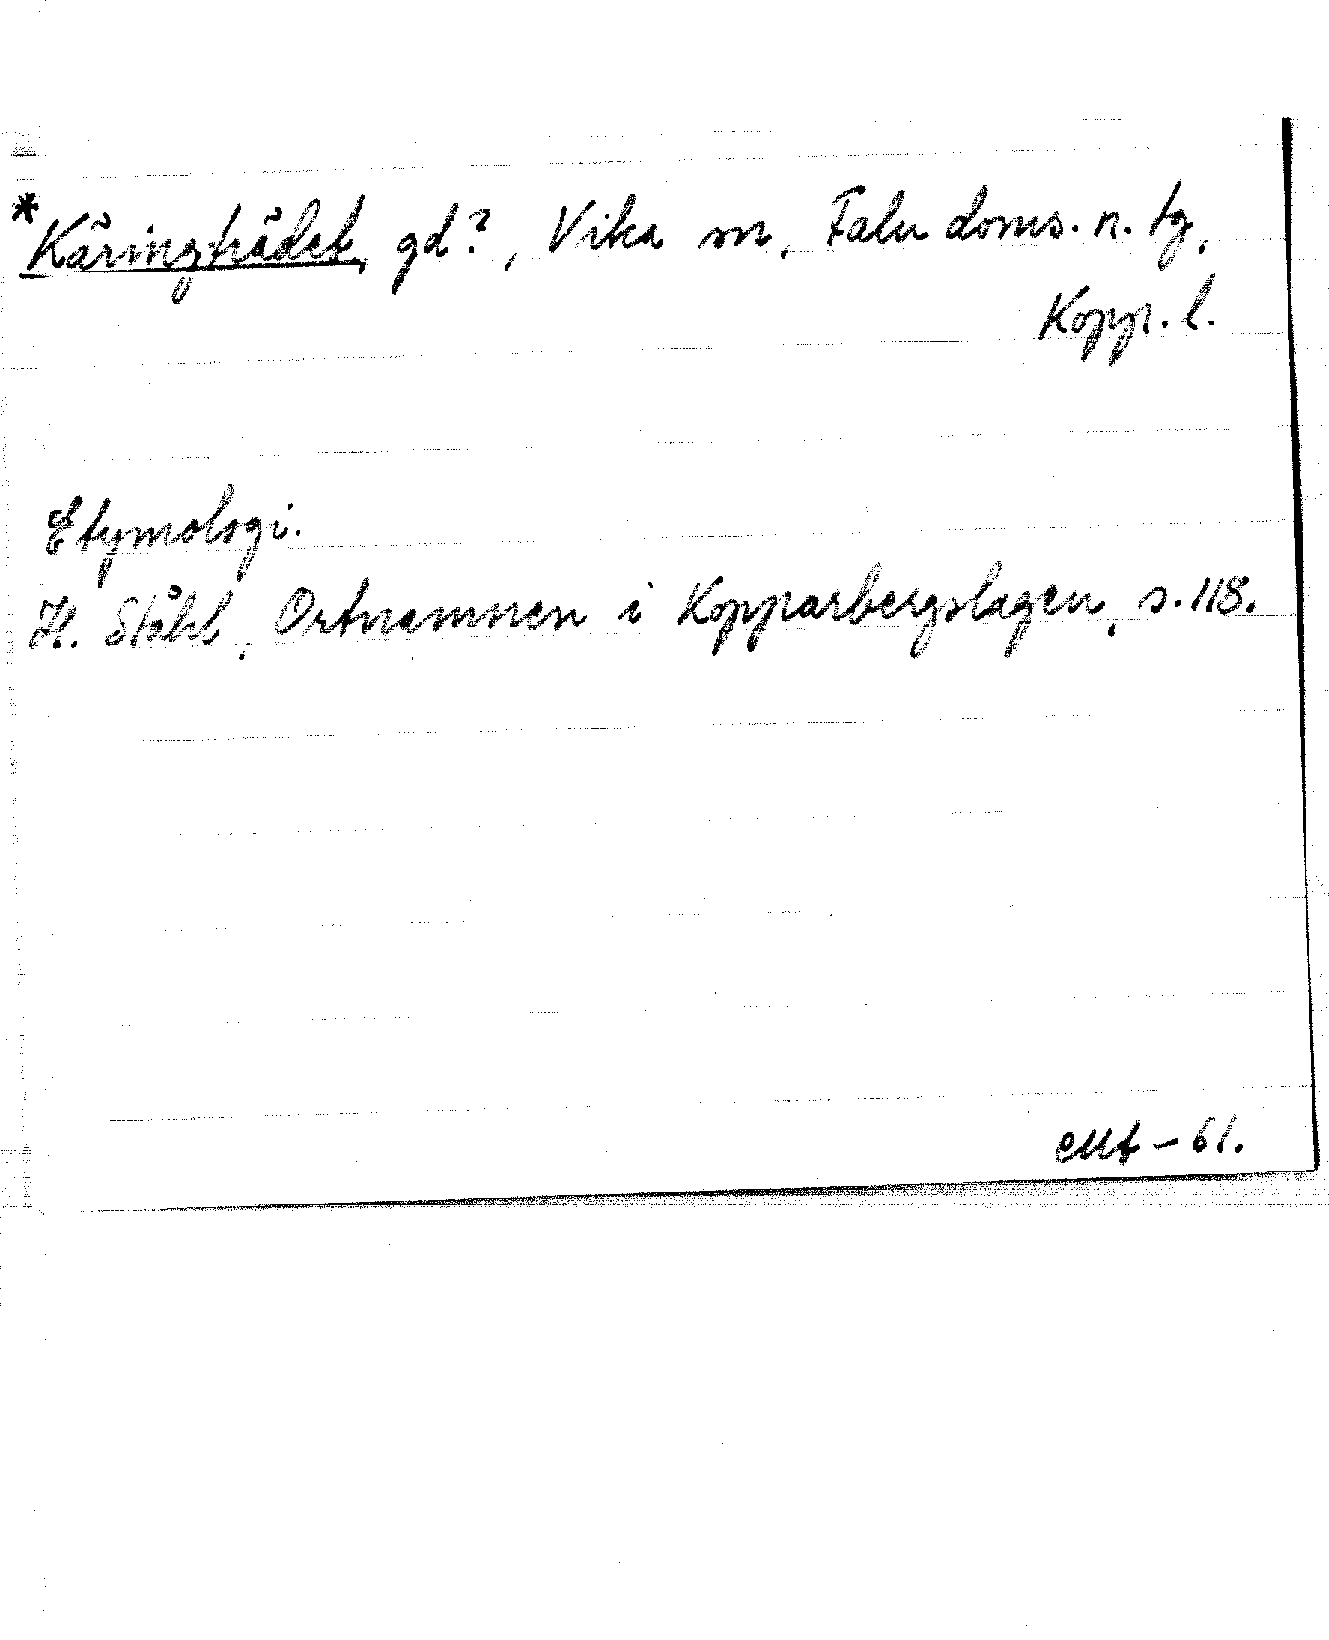 *Käringträdet, gd?, Vika sn, Falu doms. n. tg,
Kopp. l.
Etymologi.
H. Ståhl, Ortnamnen i Kopparbergslagen, s. 118.
EUt - 61.